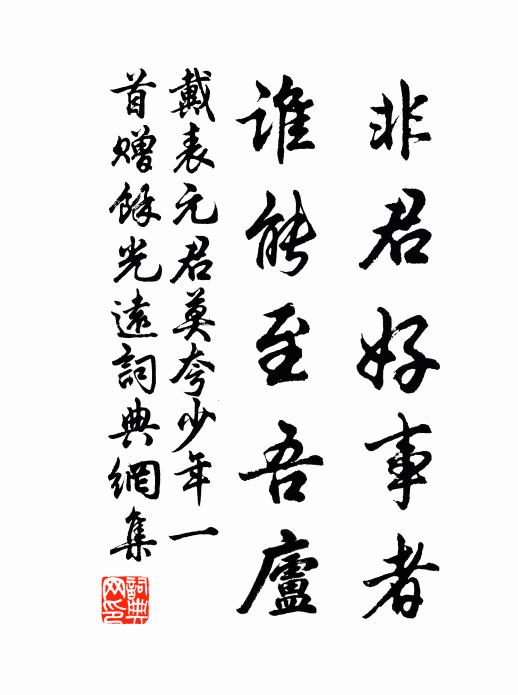 非君好事者
誰能至吾廬
戴表元君莫夸少年一
首贈餘光遠詞典網集
詞典網印